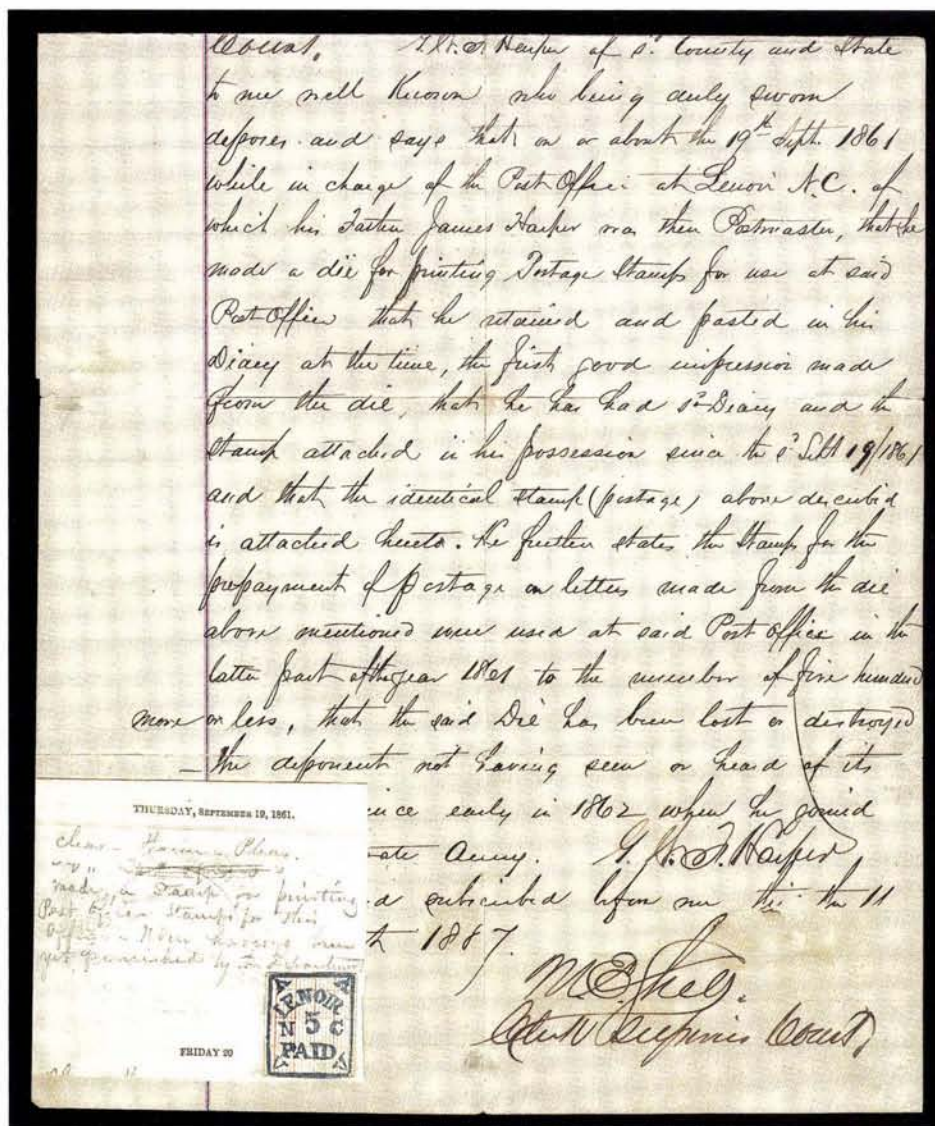 Court. G.W.F. Harper of sd. County and State
to me well Known who being duly sworn
deposes and says that on or about the 19th Sept. 1861
while in charge of the Post Office at Lenoir N.C. of
which his Father James Harper was then Postmaster, that he
made a die for printing Postage Stamps for use at said
Post Office that he retained and pasted in his
Diary at the time, the first good impression made
from the die, that he has had sd Diary and the
Stamp attached in his possession since the sd Sept 19/1861
and that the identical stamp (postage) above described
is attached hereto. He further states the Stamps for the
prepayment of postage on letters made from the die
above mentioned were used at said Post Office in the
latter part of the year 1861 to the number of five hundred
more or less, that the said Die has been lost or destroyed
— the deponent not having seen or heard of its
ince early in 1862 when he joined
rate Army. G.W.F. Harper
d subscribed before me this the 11
th 1887.
M.E. Shell.
Clerk Superior Court,
THURSDAY, SEPTEMBER 19, 1861.
clear - Pleas.
made a Stamp for printing
Post Office Stamps for this
Office - None having been
yet furnished by the
FRIDAY 20
LENOIR
N 5 C
PAID